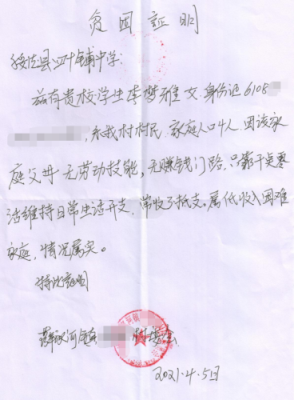 贫困证明
绥德县四十铺中学:
兹有贵校学生李梦雅 女 身份证6108
系我村村民.家庭人口4人.因该家
庭父母无劳动技能,无赚钱门路.只靠干点零
活维持日常生活开支.常收不抵支.属低收入困难
家庭.情况属实.
特此证明
河镇 村委会
2021.4.5日